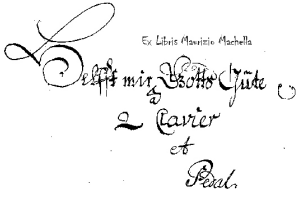 Ex Libris Maurizio Machella
Helfft mir Gotts Güte
a
2 Clavier
et
Pedal.